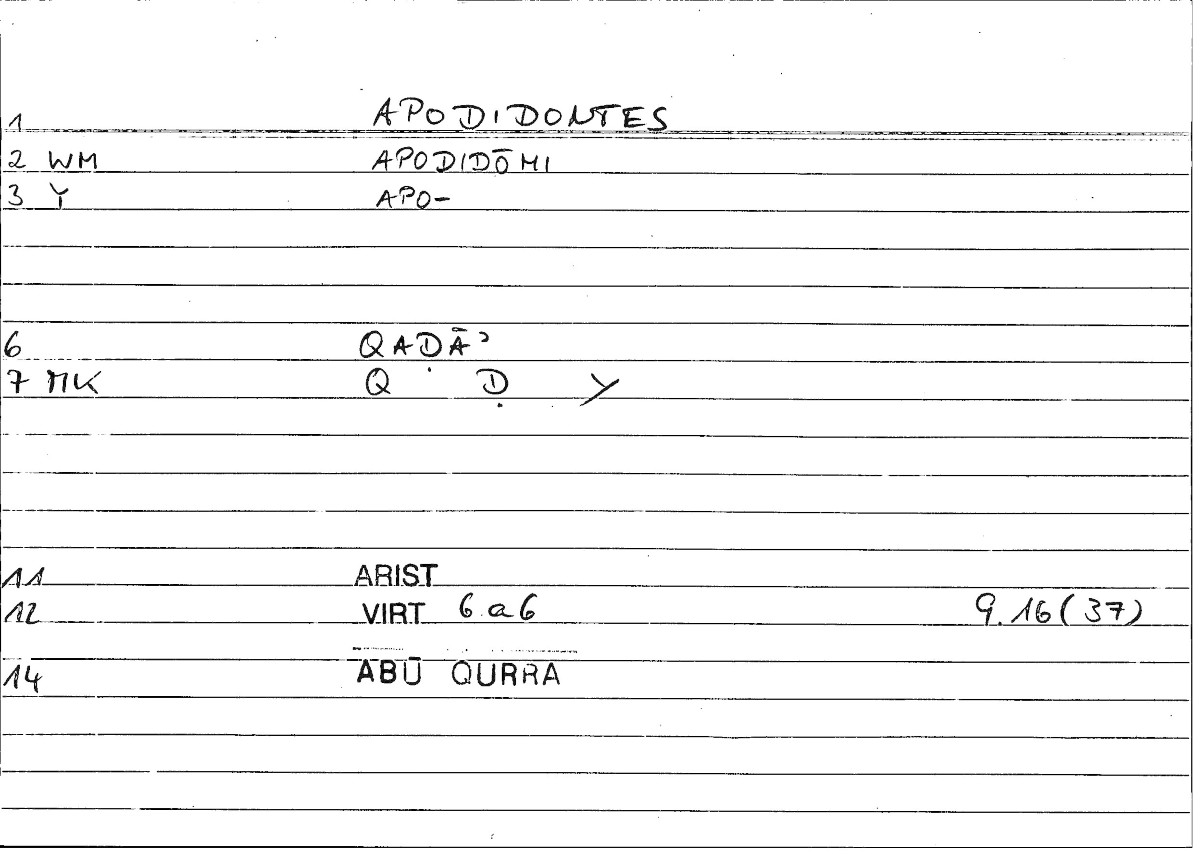 1 APODIDONTES
2 WM APODIDŌMI
3 Y APO-
6 QAḌĀʾ
7 MK Q Ḍ Y
11 ARIST
12 VIRT 6 a 6 9.16(37)
14 ABŪ QURRA